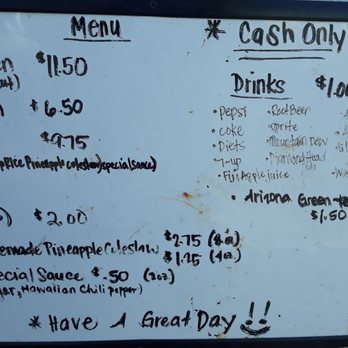 Menu
* Cash Only
$11.50
Drinks $1.00
$6.50
• Pepsi • Root Beer
• coke • Sprite
$9.75
• Diets • Mountain Dew
• 7-up • Diamond Head
• Fiji Apple juice
Rice Pineapple Coleslaw, special sauce)
• Arizona Green
$1.50
$2.00
emade Pineapple Coleslaw $2.75 (8oz)
$1.75 (4oz)
ecial Sauce $.50 (2oz)
, Hawaiian Chili pepper)
* Have A Great Day !!